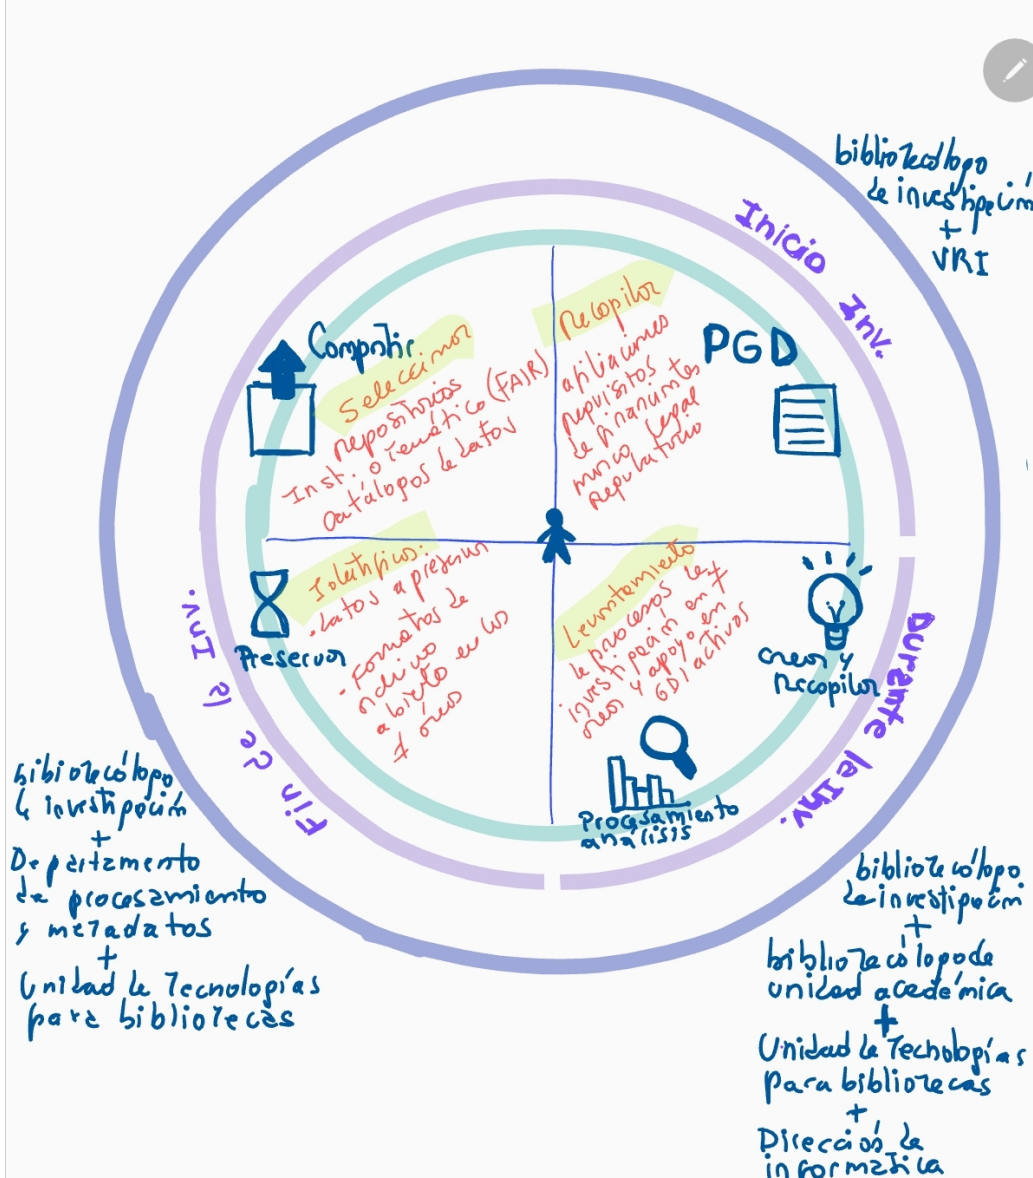 bibliotecólogo
de investigación
+
VRI
Inicio Inv.
Compartir
Seleccionar
repositorios
Inst. o temático (FAIR)
catálogos de datos
Recopilar
afiliaciones
requisitos
de financiantes
marco legal
regulatorio
PGD
Identificar:
· datos a preservar
· Formatos de
archivo
abierto en las
7 áreas
Preservar
Levantamiento
de procesos de
investigación en 7
áreas y apoyo en
GDI activos
crear y
recopilar
Procesamiento
análisis
Durante la Inv.
Fin de la Inv.
bibliotecólogo
de investigación
+
Departamento
de procesamiento
y metadatos
+
Unidad de Tecnologías
para bibliotecas
bibliotecólogo
de investigación
+
bibliotecólogo de
unidad académica
+
Unidad de Tecnologías
para bibliotecas
+
Dirección de
informática